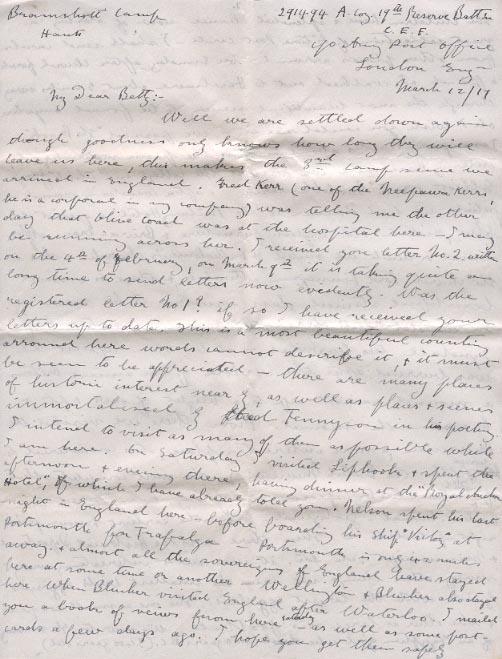 Bramshott Camp
Hants
291494 A Coy. 19th Reserve Battn
C.E.F.
Army Post Office
London Eng-
March 12/17
My Dear Betty:-
Well we are settled down again
though goodness only knows how long they will
leave us here, this makes the 3rd camp since we
arrived in England. Fred Kerr (one of the Neepawa Kerrs,
he is a corporal in my company) was telling me the other
day that Olive Coad was at the hospital here - I may
be running across her. I received you letter No. 2. written
on the 4th of February, on March 9th it is taking quite a
long time to send letters now evidently. Was the
registered letter No 1? if so I have received your
letters up to date. This is a most beautiful country
arround here words cannot describe it, & it must
be seen to be appreciated - there are many places
of historic interest near by, as well as places & scenes
immortalised by Tennyson in his poetry
I intend to visit as many of them as possible while
I am here. On Saturday I visited Liphook & spent the
afternoon & evening there, having dinner at the Royal Anchor
Hotel, of which I have already told you. Nelson spent his last
night in England here - before boarding his ship "Victory" at
Portsmouth for Trafalgar - Portsmouth is only miles
away. & almost all the sovereigns of England have stayed
here at some time or another - Wellington & Blucher also stayed
here when Blucher visited England after Waterloo. I mailed
you a book of veiws from here as well as some post-
cards a few days ago. I hope you get them safely